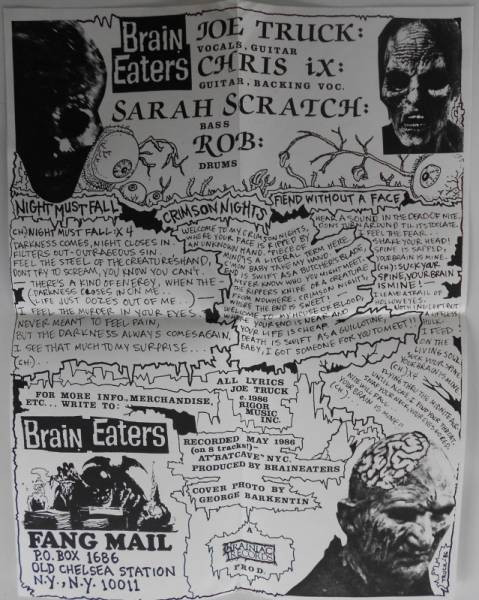 Brain
Eaters
JOE TRUCK:
VOCALS, GUITAR
CHRIS iX:
GUITAR, BACKING VOC.
SARAH SCRATCH:
BASS
ROB:
DRUMS
NIGHT MUST FALL
(CH) NIGHT MUST FALL: X 4
DARKNESS COMES, NIGHT CLOSES IN.
FILTERS OUT - OUTRAGEOUS SIN.
FEEL THE STEEL OF THE CREATURES HAND,
DONT TRY TO SCREAM, YOU KNOW YOU CAN'T.
THERE'S A KIND OF ENERGY, WHEN THE -
DARKNESS CROSSES IN ON ME..
(LIFE JUST OOZES OUT OF ME..)
I FEEL THE MURDER IN YOUR EYES.
NEVER MEANT TO FEEL PAIN,
BUT THE DARKNESS ALWAYS COMES AGAIN.
I SEE THAT MUCH TO MY SURPRISE...
(CH)...
CRIMSON NIGHTS
WELCOME TO MY CRIMSON NIGHTS,
WHERE YOUR FACE IS RIPPED BY
AN UNKNOWN HAND. "PIECE OF
MIND"S A LITERAL TERM HERE
COM BABY TAKE MY HAND.
END IS SWIFT AS A BUTCHER'S BLADE,
NEVER KNOW WHO YOU MIGHT MEET.
THE RIPPERS KNIFE OR A CREATURE
FROM NOWHERE. CRIMSON NIGHTS
MAKE THE END SO SWEET!
WELCOME TO MY HOUSE OF BLOOD,
WHERE YOUR END IS NEAR AND
YOUR LIFE IS CHEAP.
DEATH IS SWIFT AS A GUILLOTINE,
BABY, I GOT SOMEONE FOR YOU TO MEET!!
FIEND WITHOUT A FACE
HEAR A SOUND IN THE DEAD OF NITE.
DONT TURN AROUND TIL ITS TOO LATE.
FEEL THE TEAR...
SHAKE YOUR HEAD!
SPINE IS SAPPED,
YOUR BRAIN IS MINE..
(CH) I SUCK YOUR
SPINE, YOUR BRAIN
IS MINE!-
I LEAVE A TRAIL OF
HOLLOW EYES.
I FEED!
ON THE
LIVING SOUL.
SUCK YOUR SPINE
YOUR BRAIN IS MINE
(CH)
YOUR BRAIN IS MINE!!
ALL LYRICS
JOE TRUCK
c. 1986
RIGOR
MUSIC
INC.
FOR MORE INFO, MERCHANDISE,
ETC... WRITE TO:
Brain Eaters
FANG MAIL
P.O. BOX 1686
OLD CHELSEA STATION
N.Y., N.Y. 10011
RECORDED MAY 1986
(on 8 tracks!)-
AT "BATCAVE" NYC.
PRODUCED BY BRAINEATERS
COVER PHOTO BY
GEORGE BARKENTIN
A
BRAINIAC
RECORDS
PROD.